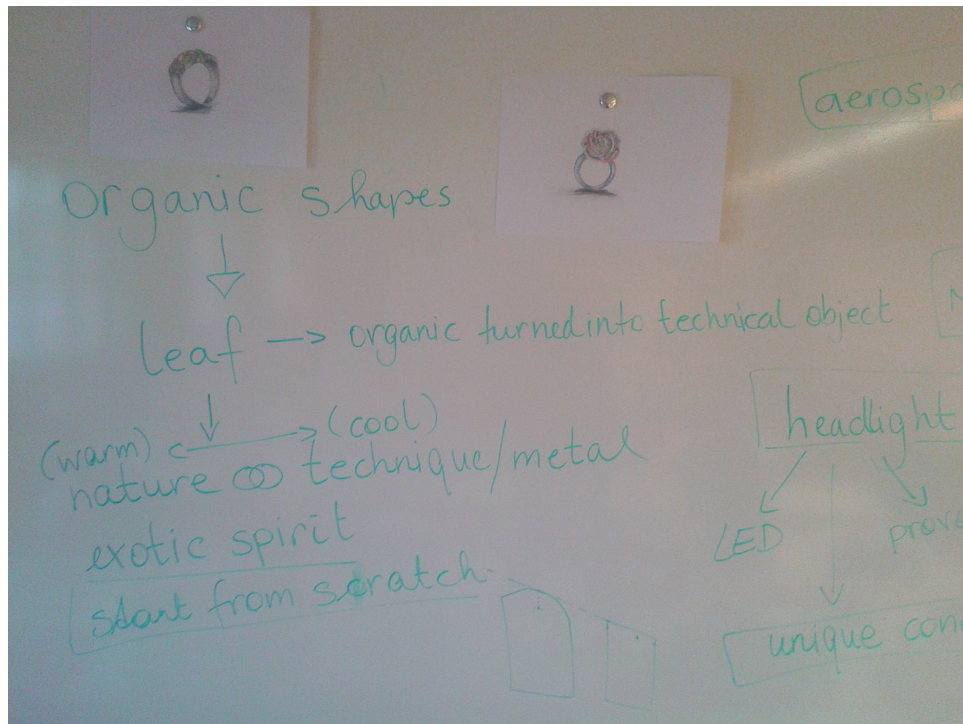 organic shapes
leaf → organic turned into technical object
(warm) ↔ (cool)
nature ∞ technique/metal
exotic spirit
start from scratch
headlight
LED
unique